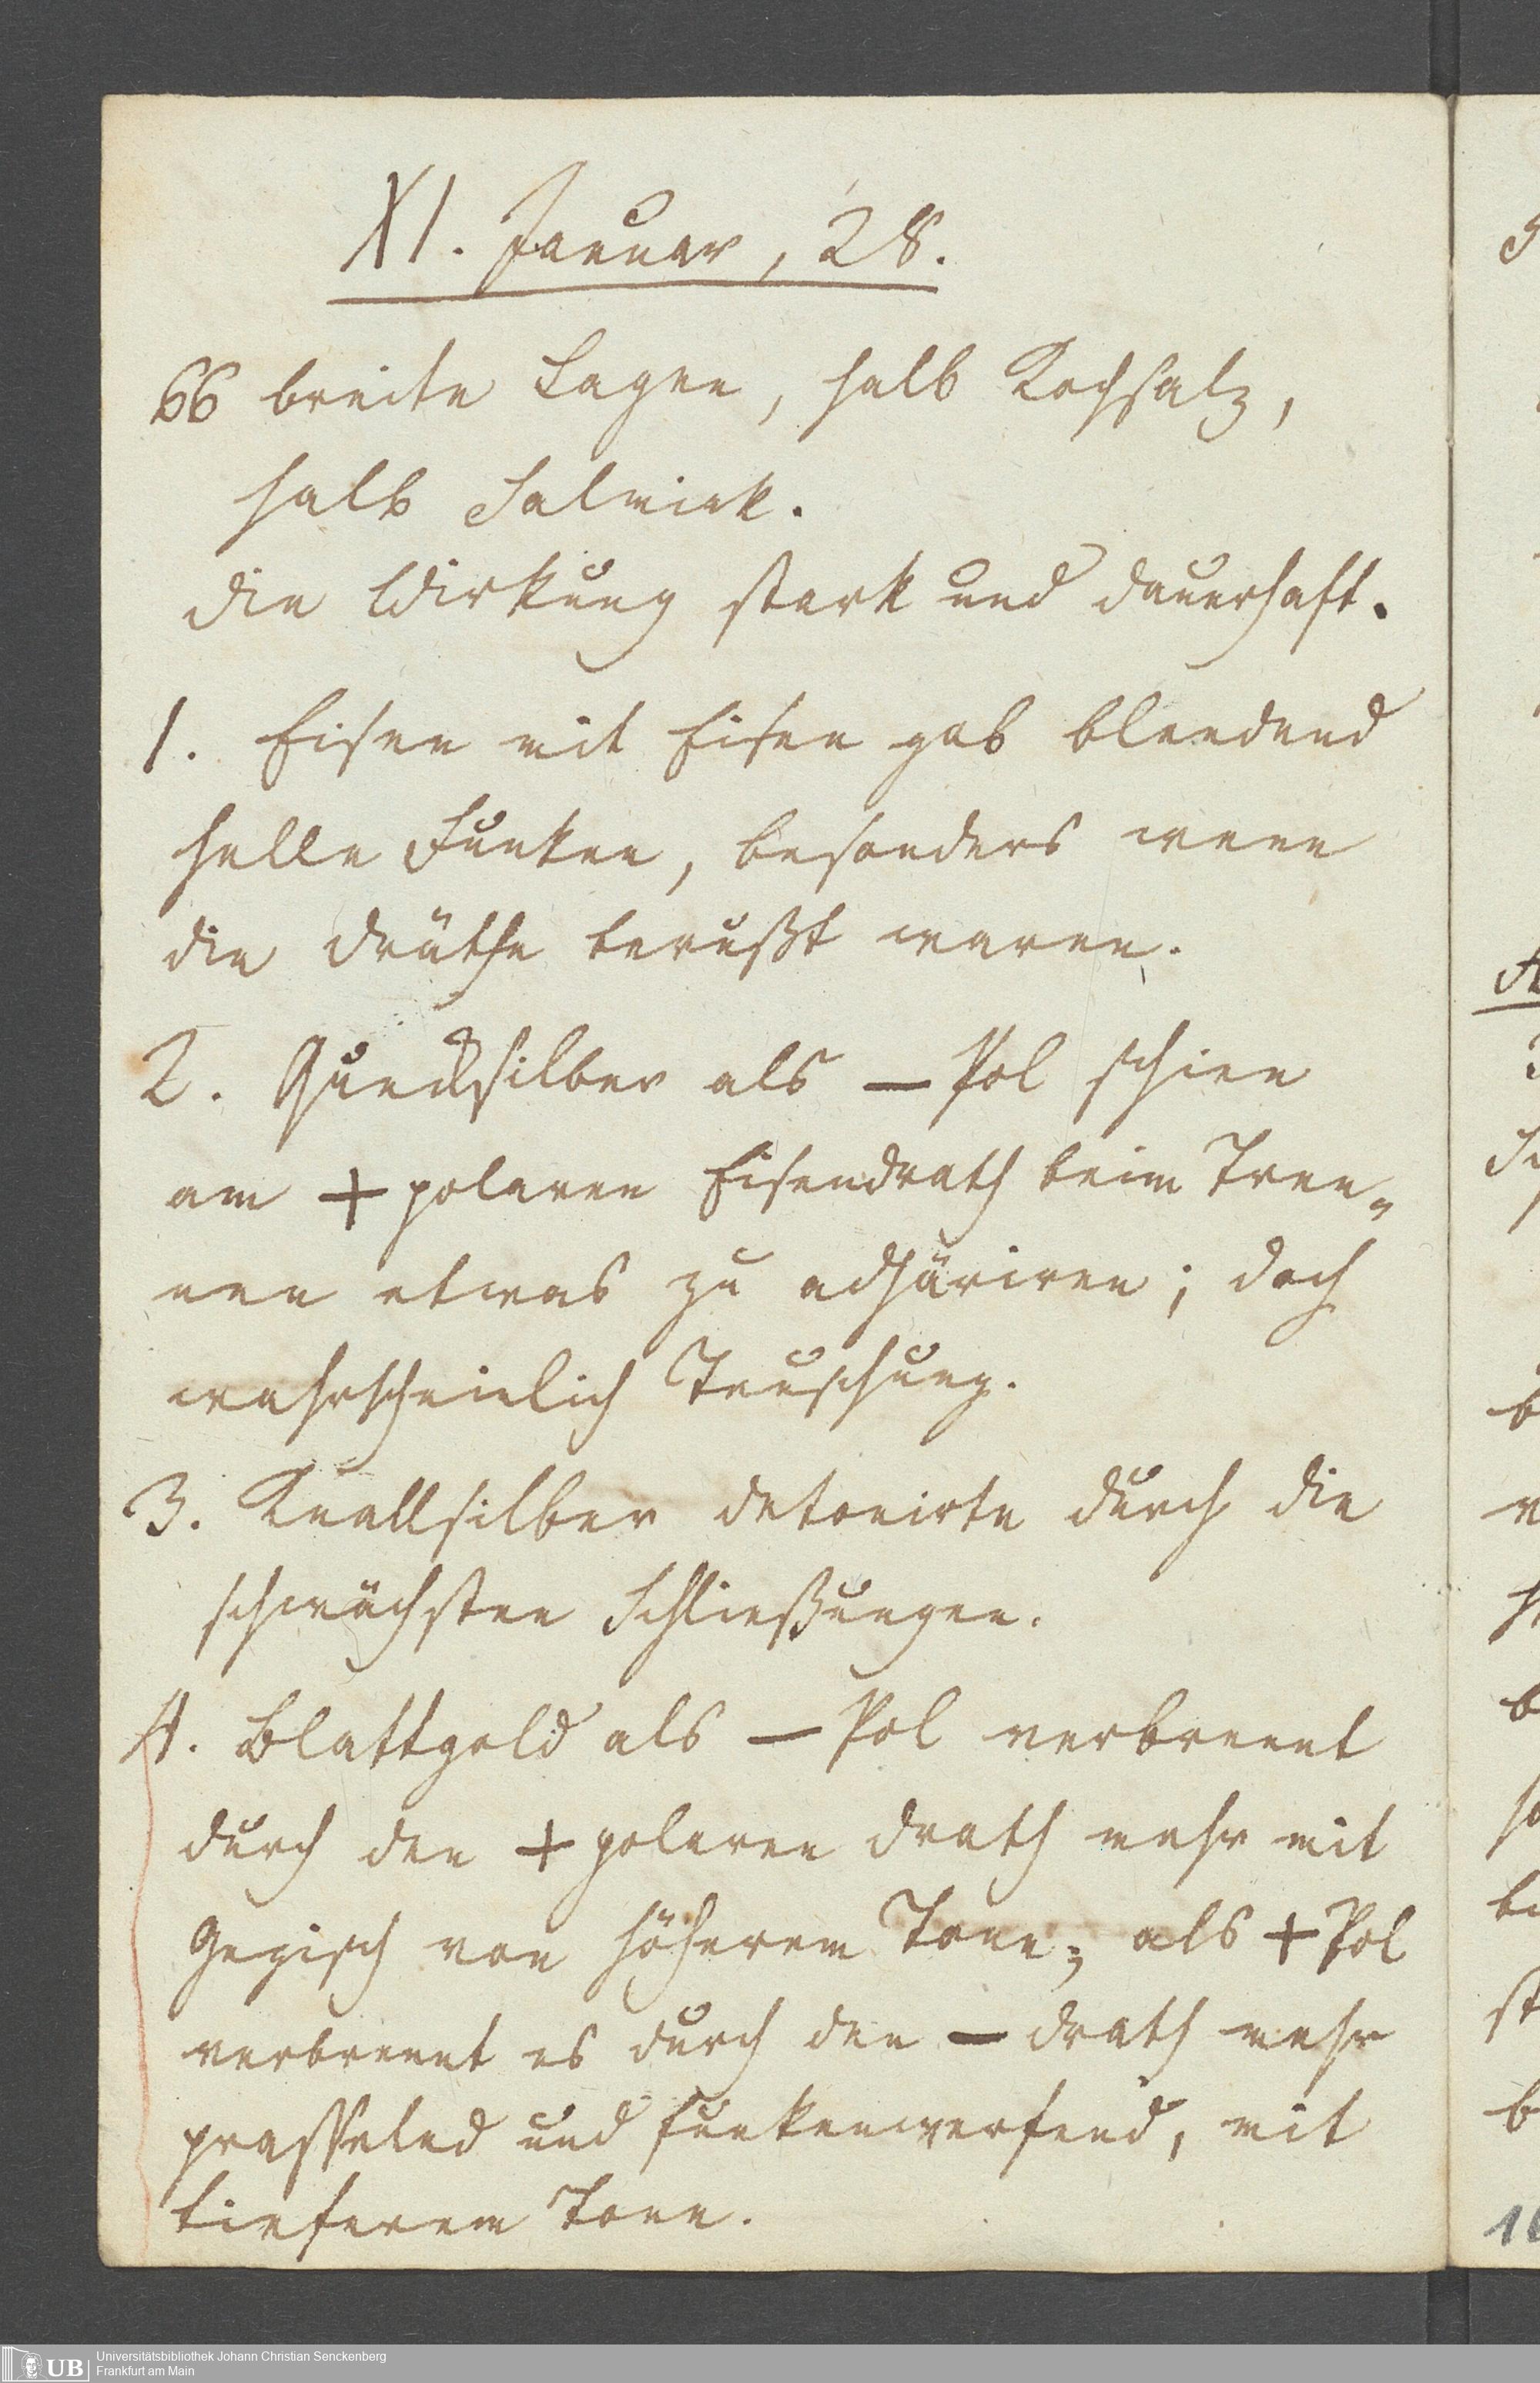 XI. Januar, 28.
66 breite Lagen, halb Kochsalz,
halb Salmiak.
die Wirkung stark und dauerhaft.
1. Eisen mit Eisen gab blendend
helle Funken, besonders wenn
die Dräthe berußt waren.
2. Quecksilber als — Pol schien
am + polaren Eisendrath beim Tren„
nen etwas zu adhäriren; doch
wahrscheinlich Teuschung.
3. Knallsilber detonirte durch die
schwächsten Schließungen.
4. Blattgold als — Pol verbrennt
durch den + polaren Drath mehr mit
Gezisch von höherem Tone; als + Pol
verbrennt es durch den — Drath mehr
prasselnd und funkenwerfend, mit
tieferem Tone.
UB
Universitätsbibliothek Johann Christian Senckenberg
Frankfurt am Main